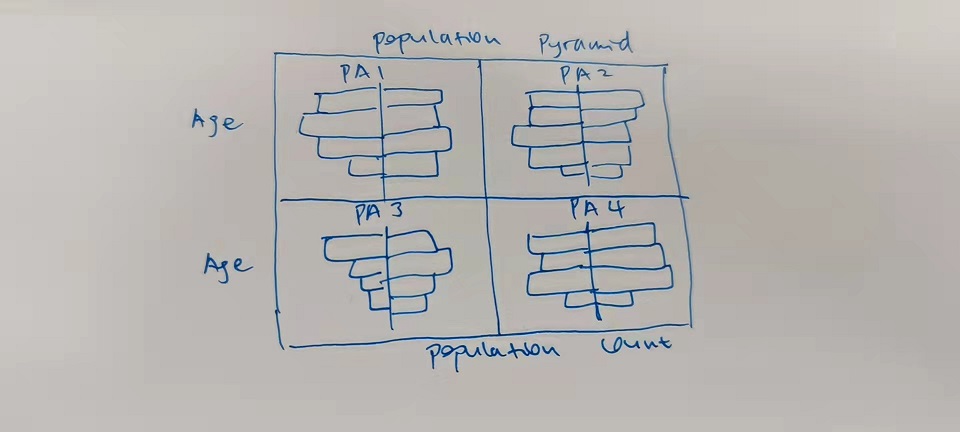 Population Pyramid
PA 1 PA 2
Age
PA 3 PA 4
Age
Population Count